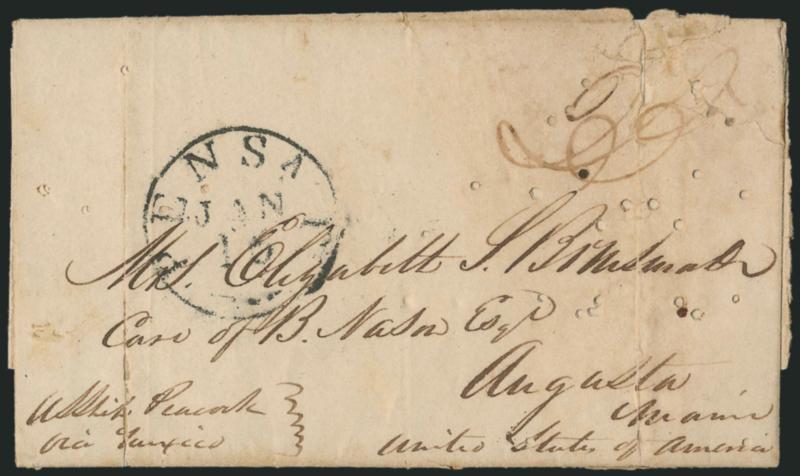 ENSA
JAN
Mrs. Elizabeth S.
Care of B. Nason Esqr
Augusta
Maine
United States of America
U.S. Ship Peacock
via